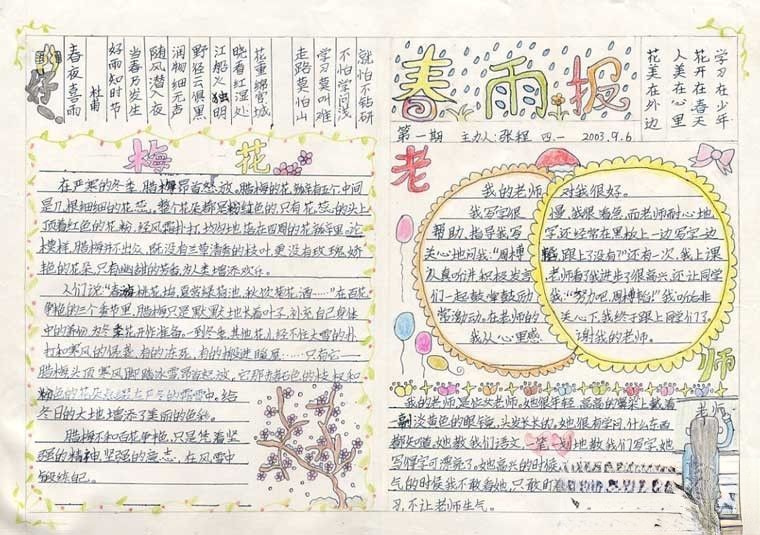 春夜喜雨
杜甫
好雨知时节
当春乃发生
随风潜入夜
润物细无声
野径云俱黑
江船火独明
晓看红湿处
花重锦官城
走路莫怕山
学习莫叫难
不怕学问浅
就怕不钻研
梅花
在严寒的冬季,腊梅昂首怒放。腊梅的花
是几根细细的花蕊。整个花朵都是粉红色的,只有花蕊的头上
顶着红色的花粉,
模样,腊梅并不出众,既没有兰花清秀的枝叶,更没有玫瑰娇
艳的花朵,只有幽甜的芳香为人类增添欢乐。
色的三个季节里,腊梅只是默默地长着叶子,补充自己身体
中的养份为冬季花开作准备。一到冬季,其他花儿经不住大雪的扑
打和寒风的侵袭,有的冻死,有的搬进暖屋……只有它——
腊梅头顶寒风脚踏冰雪昂首怒放。
冬日的大地增添了美丽的色彩。
腊梅不和百花争艳,只是凭着坚
强的精神,坚强的意志,在风雪中
锻练自己。
春雨报
第一期 主办人:张程 四.一 2003.9.6
学习在少年
花开在春天
人美在心里
花美在外边
老师
我的老师对我很好。
我写字很慢,我很着急,而老师耐心地
帮助,指导我写字还经常在黑板上一边写字一边
关心地问我:“周博韬,跟上了没有?”还有一次,我上课
认真听讲积极发言老师看了我进步了很高兴,还让同学
们一起鼓掌鼓励我:“努力吧,周博韬!”我听后非
常激动,在老师的关心下,我终于跟上同学们了。
我从心里感谢我的老师。
我的老师是位女老师。她很年轻,高高的鼻梁上戴着
一副淡黄色的眼镜,头发长长的。她很有学问,什么东西
都知道。她教我们语文,一笔一划地教我们写字,她
写得字可漂亮了。她高兴的时候
气的时候我不敢看她,只敢盯
习,不让老师生气。
老师